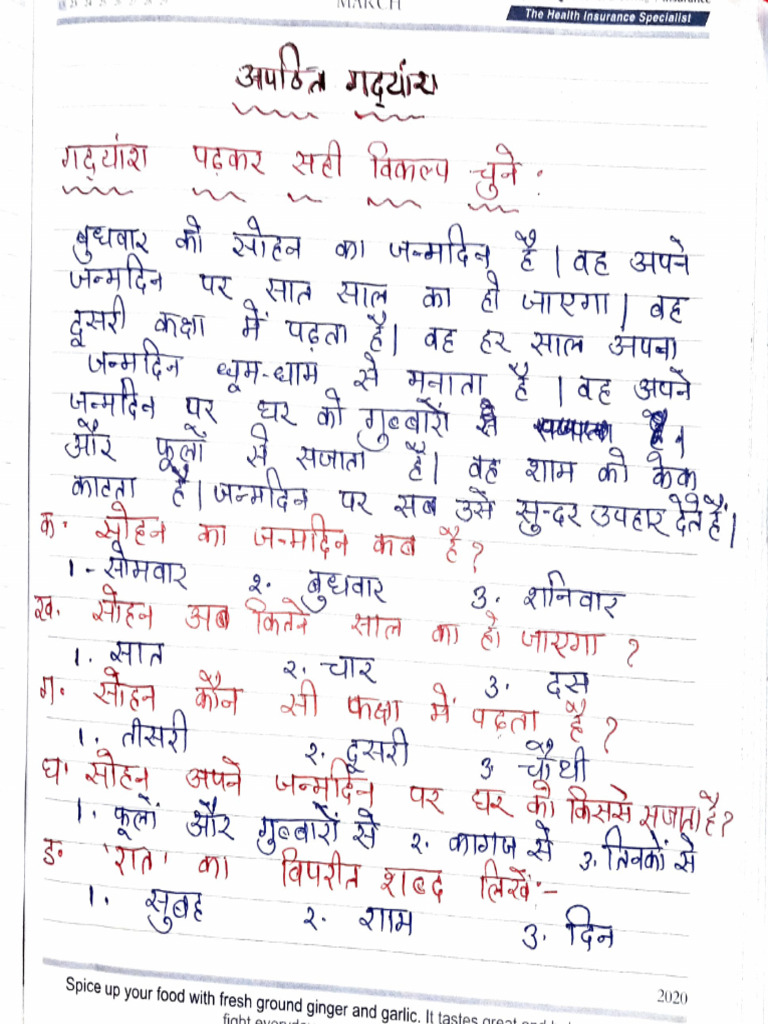 MARCH
The Health Insurance Specialist
अपठित गद्यांश
गद्यांश पढ़कर सही विकल्प चुने :
बुधवार को सोहन का जन्मदिन है। वह अपने
जन्मदिन पर सात साल का हो जाएगा। वह
दूसरी कक्षा में पढ़ता है। वह हर साल अपना
जन्मदिन धूम-धाम से मनाता है। वह अपने
जन्मदिन पर घर को गुब्बारों से
और फूलों से सजाता है। वह शाम को केक
काटता है। जन्मदिन पर सब उसे सुन्दर उपहार देते हैं।
क. सोहन का जन्मदिन कब है?
1. सोमवार २. बुधवार 3. शनिवार
ख. सोहन अब कितने साल का हो जाएगा ?
1. सात २. चार 3. दस
ग. सोहन कौन सी कक्षा में पढ़ता है ?
1. तीसरी २. दूसरी 3 चौथी
घ. सोहन अपने जन्मदिन पर घर को किससे सजाता है?
1. फूलों और गुब्बारों से २. कागज से 3. तिनकों से
ङ. 'रात' का विपरीत शब्द लिखें:-
1. सुबह २. शाम 3. दिन
2020
Spice up your food with fresh ground ginger and garlic. It tastes great